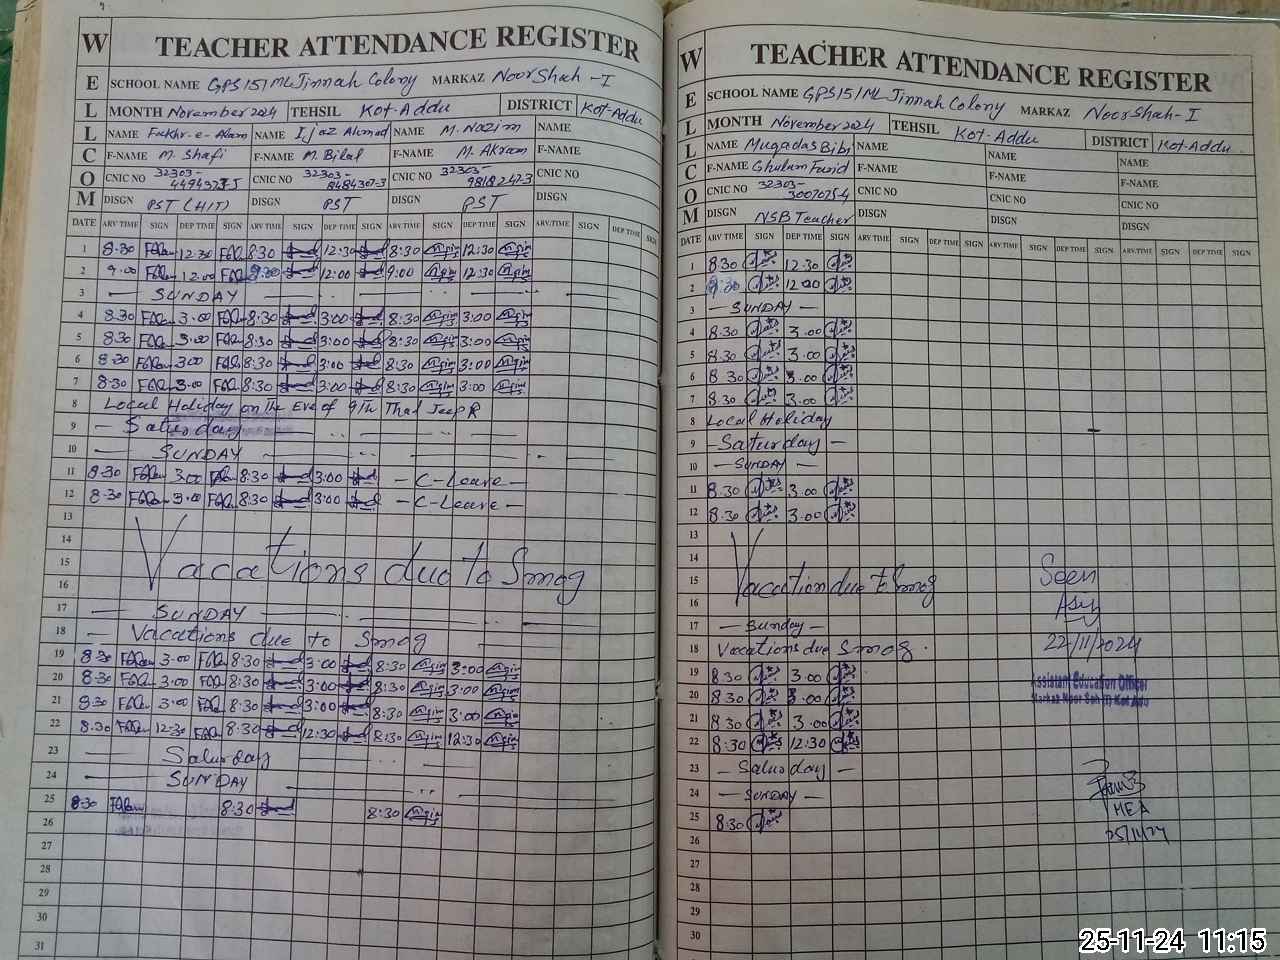 W
E
L
L
C
O
M
TEACHER ATTENDANCE REGISTER
SCHOOL NAME GPS 151/ML Jinnah Colony MARKAZ Noor Shah - I
MONTH November 2024 TEHSIL Kot-Addu DISTRICT Kot-Addu
NAME Fakhr-e-Alam NAME Ijaz Ahmad NAME M. Nazim NAME
F-NAME M. Shafi F-NAME M. Bilal F-NAME M. Akram F-NAME
CNIC NO 32303- CNIC NO 32303- CNIC NO 32303- CNIC NO
DISGN PST (HIT) DISGN PST DISGN PST DISGN
DATE ARV TIME SIGN DEP TIME SIGN ARV TIME SIGN DEP TIME SIGN ARV TIME SIGN DEP TIME SIGN ARV.TIME SIGN DEP TIME SIGN
1 8.30 12.30 8:30 12:30 8:30 12:30
2 9.00 12.00 12:00 9:00 12:30
3 — SUNDAY —
4 8.30 3.00 8:30 3:00 8:30 3:00
5 8.30 3.00 8:30 3:00 8:30 3:00
6 8.30 3.00 8:30 3:00 8:30 3:00
7 8.30 3.00 8:30 3:00 8:30 3:00
8 Local Holiday on The Eve of 9Th Thal JeepR
9 — Saturday —
10 — SUNDAY —
11 8.30 3.00 8:30 3:00 — C-Leave —
12 8.30 3.00 8:30 3:00 — C-Leave —
13
14
15 Vacations due to Smog
16
17 — SUNDAY —
18 — Vacations due to Smog
19 8.30 3.00 8:30 3:00 8:30 3:00
20 8.30 3.00 8:30 3:00 8:30 3:00
21 8.30 3.00 8:30 3:00 8:30 3:00
22 8.30 12.30 8:30 12:30 8:30 12:30
23 — Saturday
24 — SUNDAY
25 8.30 8:30 8:30
26
27
28
29
30
31
W
E
L
L
C
O
M
TEACHER ATTENDANCE REGISTER
SCHOOL NAME GPS 151/ML Jinnah Colony MARKAZ Noor Shah - I
MONTH November 2024 TEHSIL Kot-Addu DISTRICT Kot-Addu
NAME Muqadas Bibi NAME NAME NAME
F-NAME Ghulam Farid F-NAME F-NAME F-NAME
CNIC NO 32303- CNIC NO CNIC NO CNIC NO
DISGN NSB Teacher DISGN DISGN DISGN
DATE ARV TIME SIGN DEP TIME SIGN ARV TIME SIGN DEP TIME SIGN ARV TIME SIGN DEP TIME SIGN ARV TIME SIGN DEP TIME SIGN
1 8.30 12.30
2 12.00
3 — SUNDAY —
4 8.30 3.00
5 8.30 3.00
6 8.30 3.00
7 8.30 3.00
8 Local Holiday
9 — Saturday —
10 — SUNDAY —
11 8.30 3.00
12 8.30 3.00
13
14
15 Vacation due to Smog
16
17 — Sunday —
18 Vocations due Smog.
19 8.30 3.00
20 8.30 3.00
21 8.30 3.00
22 8:30 12:30
23 — Saturday —
24 — SUNDAY —
25 8.30
26
27
28
29
30
Seen
22/11/2024
Assistant Education Officer
MEA
25/11/24
25-11-24 11:15